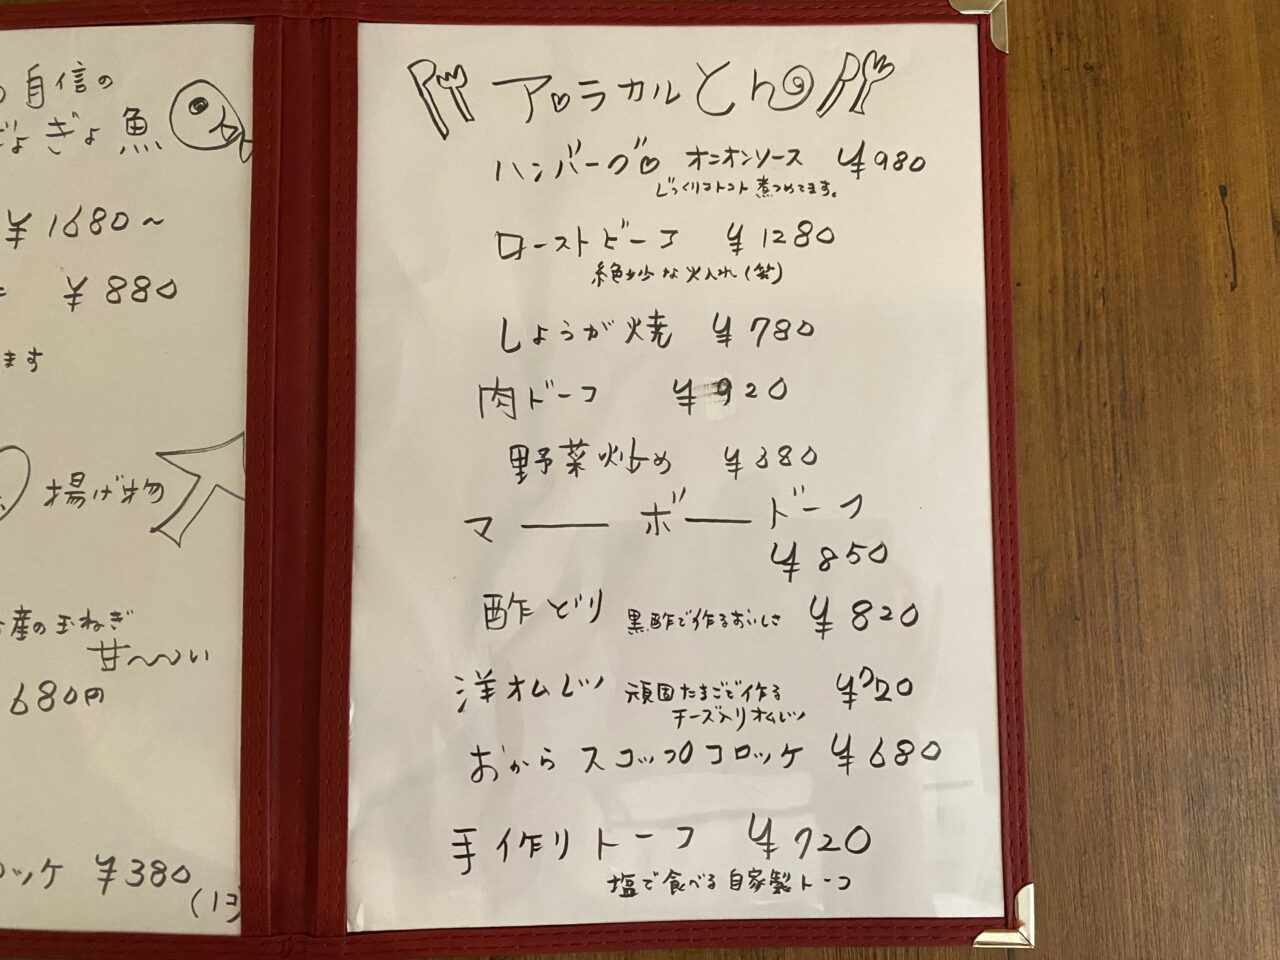 自信の
ぎょぎょ魚
¥1680〜
¥880
ます
揚げ物
産の玉ねぎ
甘〜〜い
680円
ロッケ ¥380
ア・ラカルとん
ハンバーグ オニオンソース ¥980
じっくりコトコト煮つめてます。
ローストビーフ ¥1280
絶妙な火入れ(笑)
しょうが焼 ¥780
肉ドーフ ¥920
野菜炒め ¥680
マ――ボ――ドーフ
¥850
酢どり 黒酢で作るおいしさ ¥820
洋オムレツ 頑固たまごで作る ¥720
チーズ入りオムレツ
おからスコップコロッケ ¥680
手作りトーフ ¥720
塩で食べる自家製トーフ